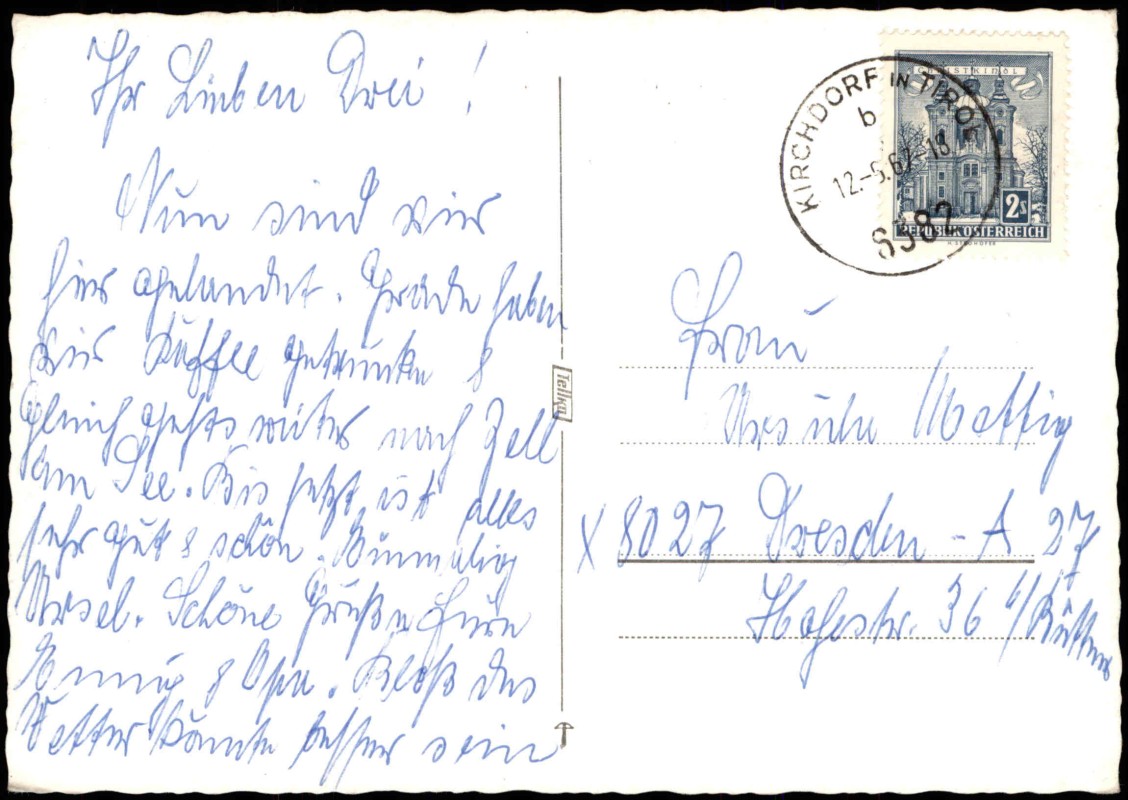 Ihr Lieben Drei!
Nun sind wir
hier gelandet. Grade haben
wir Kaffee getrunken &
gleich gehts weiter nach Zell
am See. Bis jetzt ist alles
sehr gut & schön. Einmalig
Ursel. Schöne Grüße Eure
& Opa. Bloß das
Wetter könnte besser sein
Tellko
KIRCHDORF IN TIROL
b
12.-5.67-18
6382
CHRISTKINDL
2s
REPUBLIK ÖSTERREICH
Frau
Ursula Mattig
X 8027 Dresden - A 27
Hohestr. 36 b/